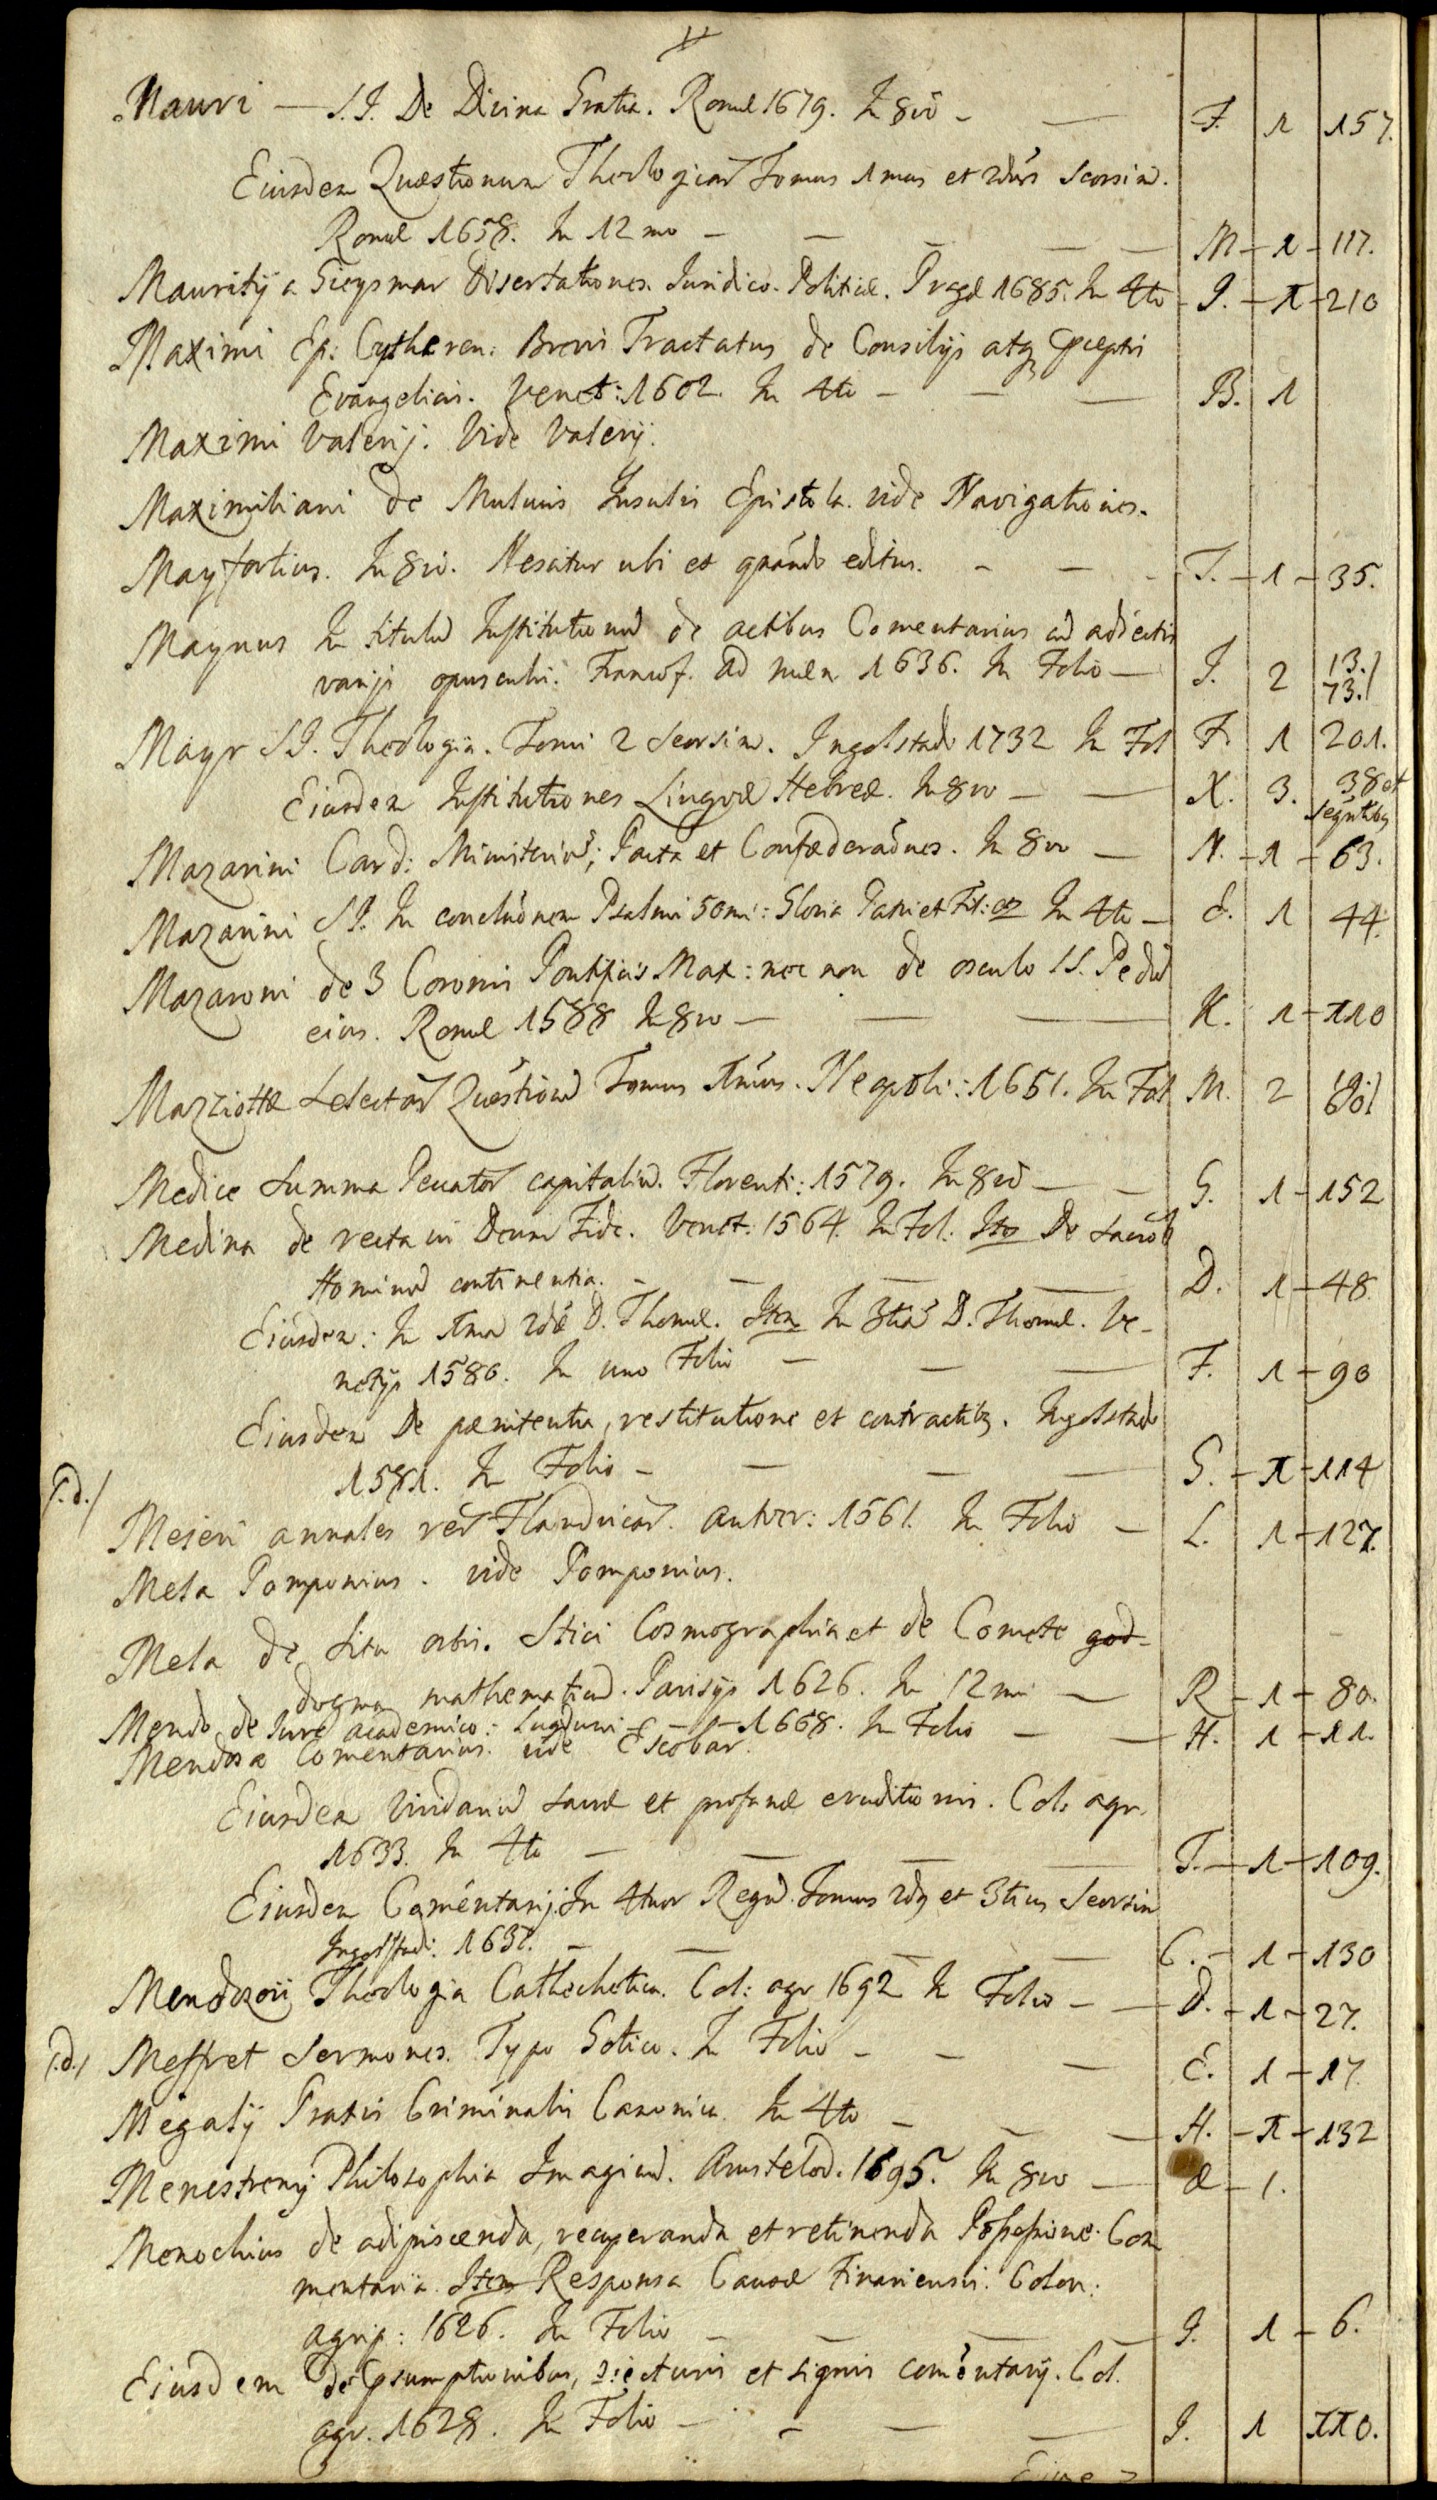 Mauri — S.J. De Divina Gratia. Romæ 1679. In 8vo — — F. 1 157.
Eiusdem Quæstionum Theologicar Tomus 1mus et 2dus Seorsim.
Romæ 1658. In 12mo — — — — — M — 1 — 117.
Mauritij a Gieysmar Dissertationes Juridico-Politicæ. Pragæ 1685. In 4to — J. — 1 — 210
Maximi Ep: Cytheren: Brevis Tractatus de Consilijs atq præceptis
Evangelicis. Venet: 1602. In 4to — — — B. 1
Maximi Valerij. Vide Valerij.
Maximiliani de Mulucis Insulis Epistola. vide Navigationes.
Mayfortius. In 8vo. Nescitur ubi et quando editus. — — — T. — 1 — 35.
Maynus In titulum Institutionum de actibus Comentarius cum adiectis
varijs opusculis. Francof. ad Mæn 1636. In Folio — J. 2 13. 73.
Mayr S.J. Theologia. Tomi 2 Seorsim. Ingolstadij 1732 In Fol F. 1 201.
Eiusdem Institutiones Linguæ Hebreæ. In 8vo — — X. 3. 38 et
Mazarini Card: Ministerium; Pacta et Confæderationes. In 8vo — N. — 1 — 63.
Mazarini S.J. In conclusionem Psalmi 50mi: Gloria Patri et Fil: etc In 4to — E. 1 44.
Mazaroni de 3 Coronis Pontificis Max: nec non de osculo SS. Pedum
eius. Romæ 1588 In 8vo — — — K. 1 — 110
Mazziottæ Selectar Quæstionum Tomus 1mus. Neapoli: 1651. In Fol M. 2
Medices Summa Peccator capitalium. Florenti: 1579. In 8vo — — G. 1 — 152
Medina de recta in Deum Fide. Venet. 1564. In Fol. Item De Sacror
Hominum continentia. — — — — D. 1 — 48.
Eiusdem: In 1ma 2dæ D. Thomæ. Item In 3tia D. Thomæ. Ve-
netijs 1580. In uno Folio — — — F. 1 — 90
Eiusdem De pænitentia, restitutione et contractibq. Ingolstadij
1581. In Folio — — — — G. — 1 — 114
Mejeri annales rer Flandricar. Antver: 1561. In Folio — L. 1 — 127.
Mela Pomponius. vide Pomponius.
Mela de Situ orbis. Itici Cosmographia et de Comete god-
dogma mathematicum. Parisijs 1626. In 12mo — R — 1 — 80.
Mendo de Jure academico: Lugduni — — 1668. In Folio — — H. 1 — 11.
Mendosæ Comentarius. vide Escobar.
Eiusdem Viridarium sacræ et profanæ eruditionis. Col. agr.
1633. In 4to — — — — T. — 1 — 109.
Eiusdem Comentarij In 4tuor Regum. Tomus 2dq et 3tius Seorsim
Ingolstadi: 1632. — — — — C. — 1 — 130
Mendozoii Theologia Cathechetica. Col: agr 1692 In Folio — — D. — 1 — 27.
Meffret Sermones. Typo Gotico. In Folio — — — E. 1 — 17.
Megaly Praxis Criminalis Canonica. In 4to — — — H. — 1 — 132
Menestrerij Philosophia Imaginum. Amstelod. 1695. In 8vo — Æ — 1.
Menochius de adipiscenda, recuperanda et retinenda Possessione. Com
mentaria. Item Responsa Causæ Finariensis. Colon:
agrip: 1626. In Folio — — — — J. 1 — 6.
Eiusdem de Præsumptionibus, Coniecturis et signis comentarij. Col.
agr. 1628. In Folio — — — — J. 1 110.